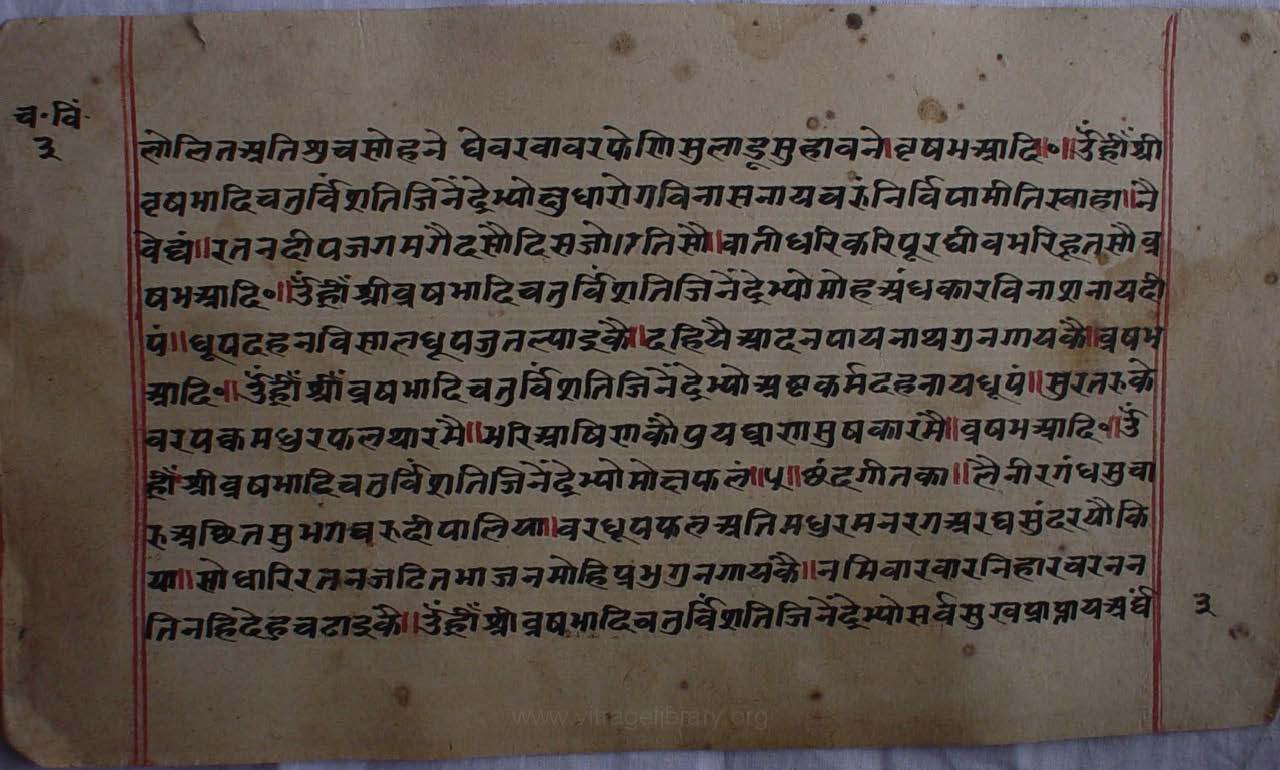 च॰विं॰
३
लोलितअतिशुचसोहने घेवरवावरफेणिसुलाडूसुहावने॥वृषभआदि॰॥उँह्रीँश्री
वृषभादिचतुर्विंशतिजिनेंद्रेभ्योक्षुधारोगविनासनायचरुंनिर्विपामीतिस्वाहा॥नै
वेद्यं॥रतनदीपजगमगैदसौदिसजो।तिसौ॥वातीधरिकरिपूरघीवभरिहूतसौ॥व्र
षभआदि॰॥उँह्रीँश्रीव्रषभादिचतुर्विंशतिजिनेंद्रेभ्योमोहअंधकारविनाशनायदी
पं॥धूपदहनविसालधूपजुतल्याइकै॥दहियैआदनपायनाथगुनगायकै॥व्रषभ
आदि॰॥उँह्रीँश्रीँव्रषभादिचतुर्विंशतिजिनेंद्रेभ्योअष्टकर्मदहनायधूपं॥सुरतरुके
वरपक्वमधुरफलथारमै॥भरिआषिराकौपुयघ्राणसुषकारमै॥व्रषभआदि॰॥उँ
ह्रीँश्रीव्रषभादिचतुर्विंशतिजिनेंद्रेभ्योमोक्षफलं॥५॥छंदगीतका॥लैनीरगंधसुचा
रुअछितसुभगचरुदीपालिया॥वरधूपफलअतिमधुरमनरगअरघसुंदरयौकि
या॥सोधारिरतनजटितभाजनमोहिप्रभगुनगायंकै॥नमिवारवारनिहारवरनन
तिनहिदेहचढाइकै॥उँह्रीँश्रीव्रषभादिचतुर्विंशतिजिनेंद्रेभ्योसर्वसुखप्राप्तायअर्घं
३
www.vitragelibrary.org